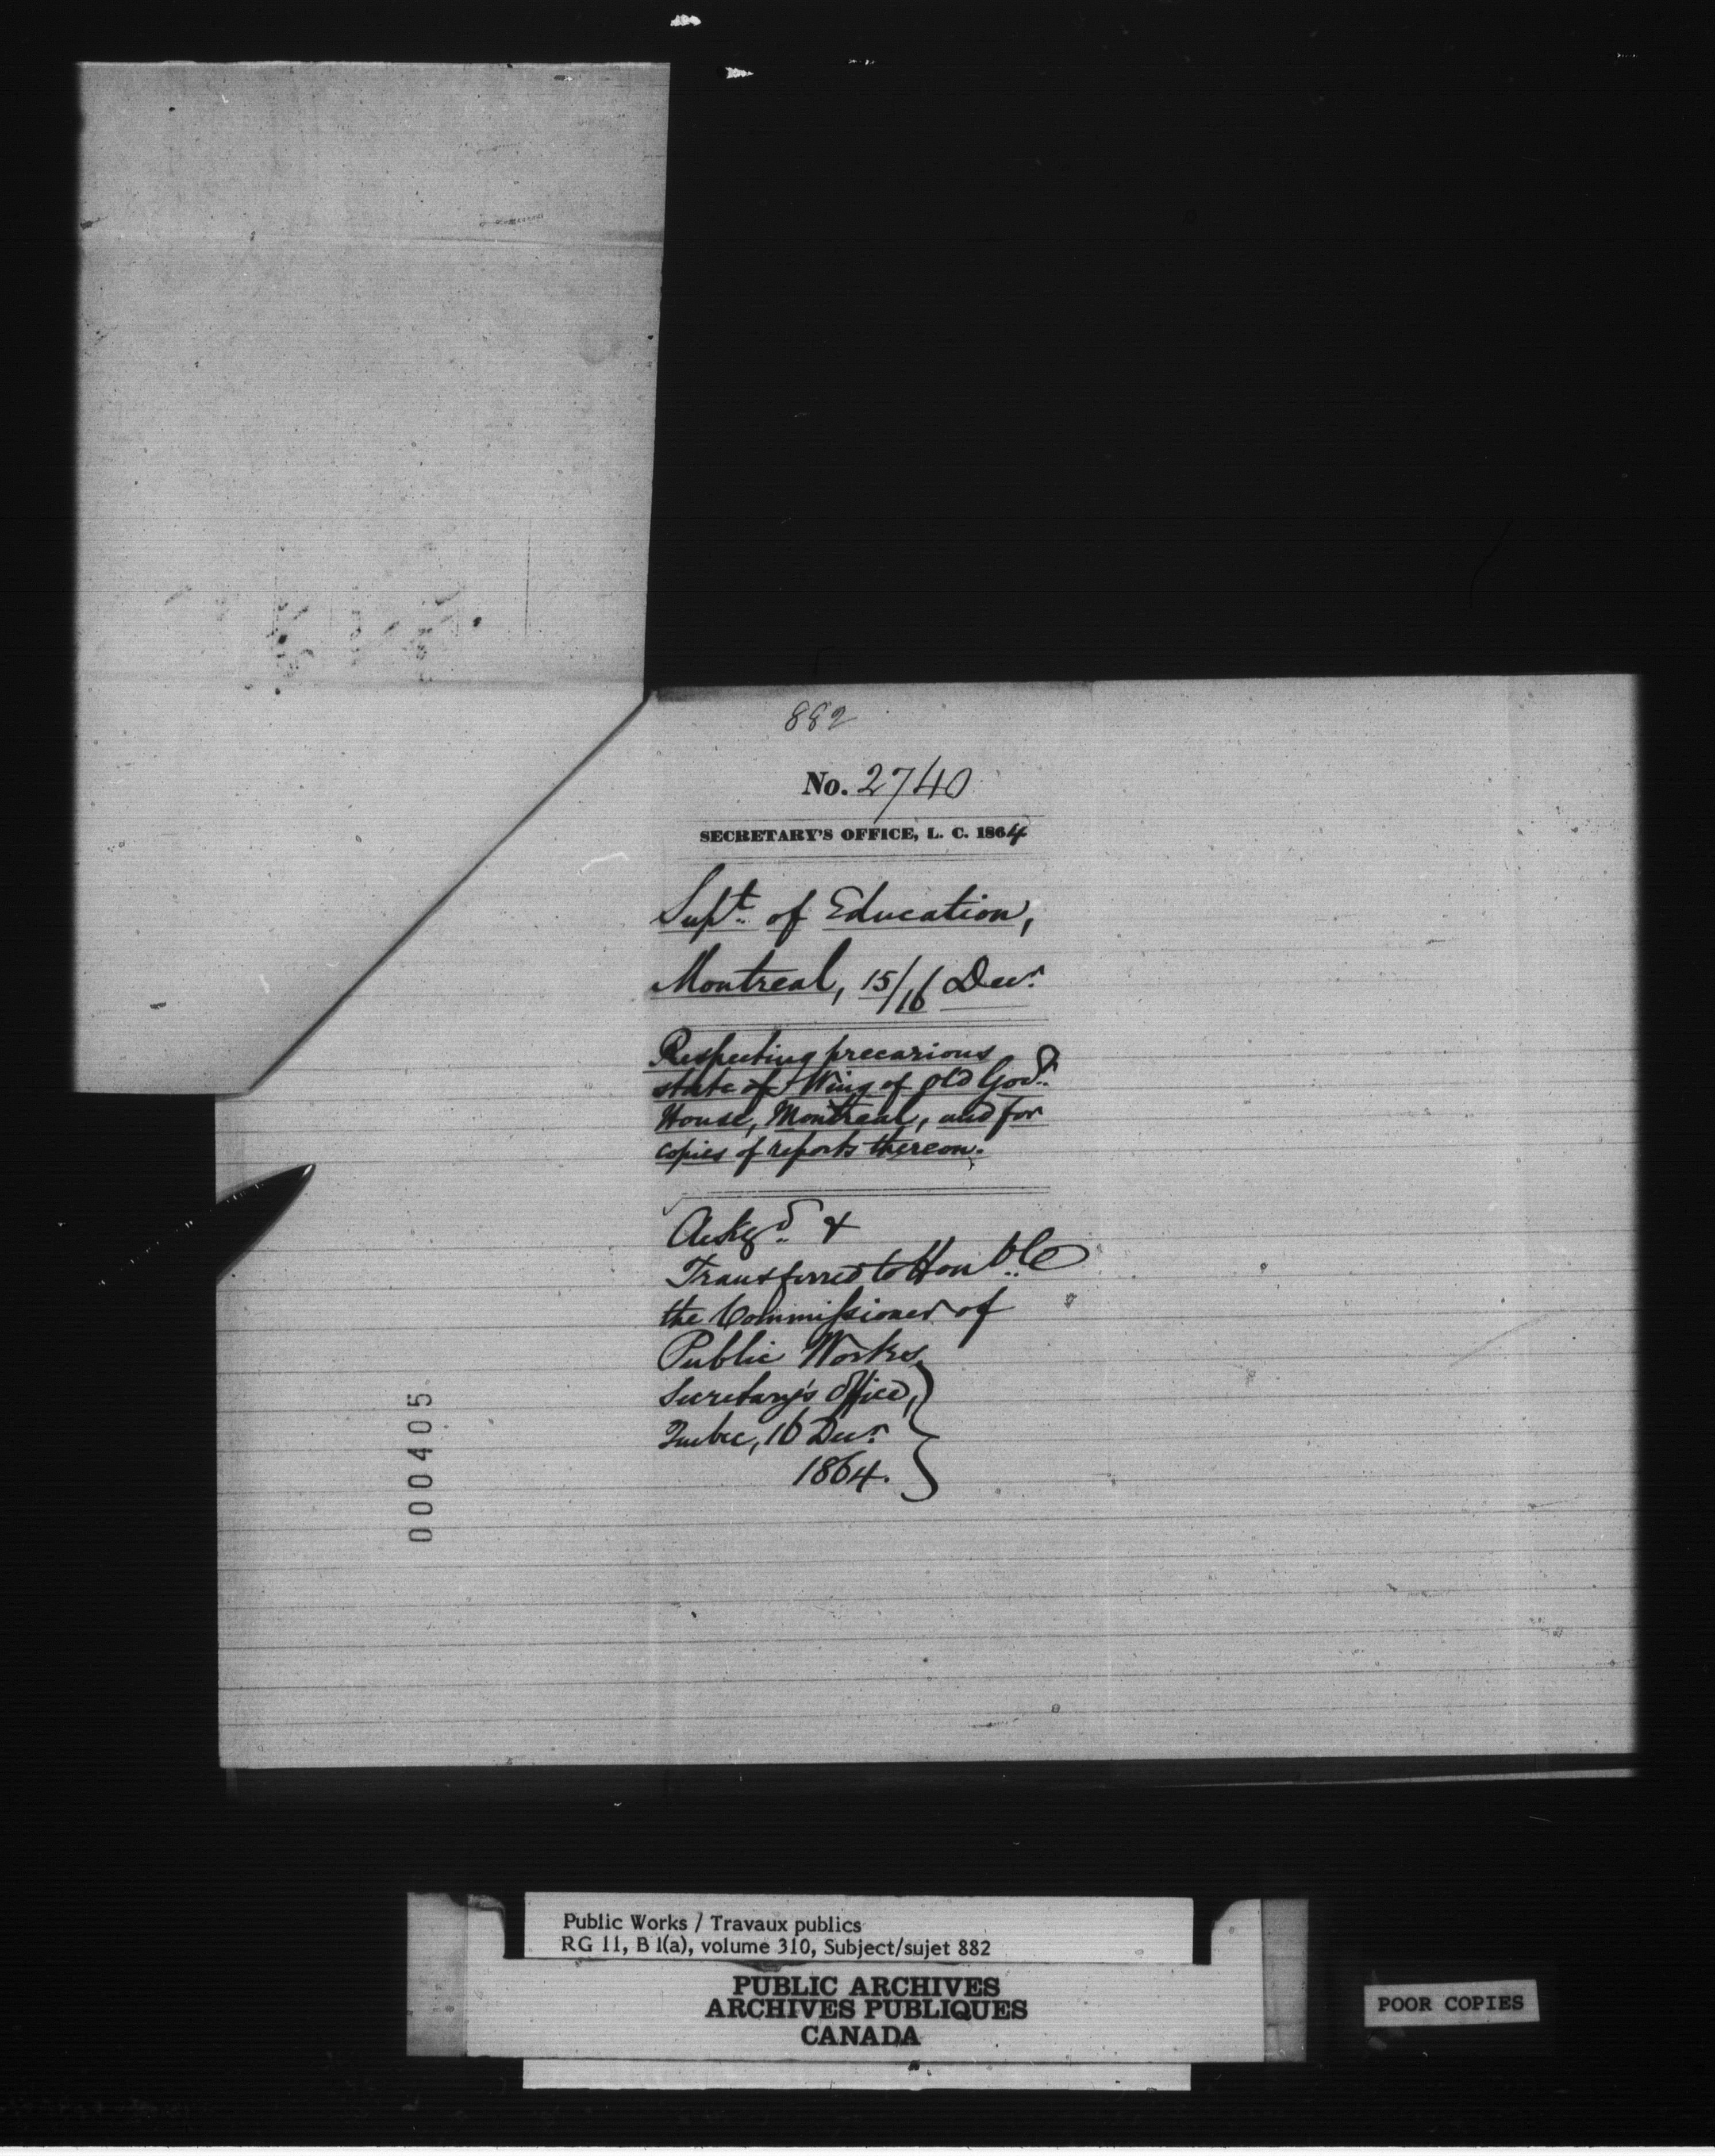 882
No. 2740
SECRETARY'S OFFICE, L. C. 1864
Supt. of Education,
Montreal, 15/16 Decr.
Respecting precarious
state of Wing of old Govt.
House, Montreal, and for
copies of reports thereon.
Ackgd. &
Transferred to Honble
the Commissioner of
Public Works.
Secretary's Office,
Quebec, 16 Decr.
1864.
000405
Public Works / Travaux publics
RG 11, B 1(a), volume 310, Subject/sujet 882
PUBLIC ARCHIVES
ARCHIVES PUBLIQUES
CANADA
POOR COPIES